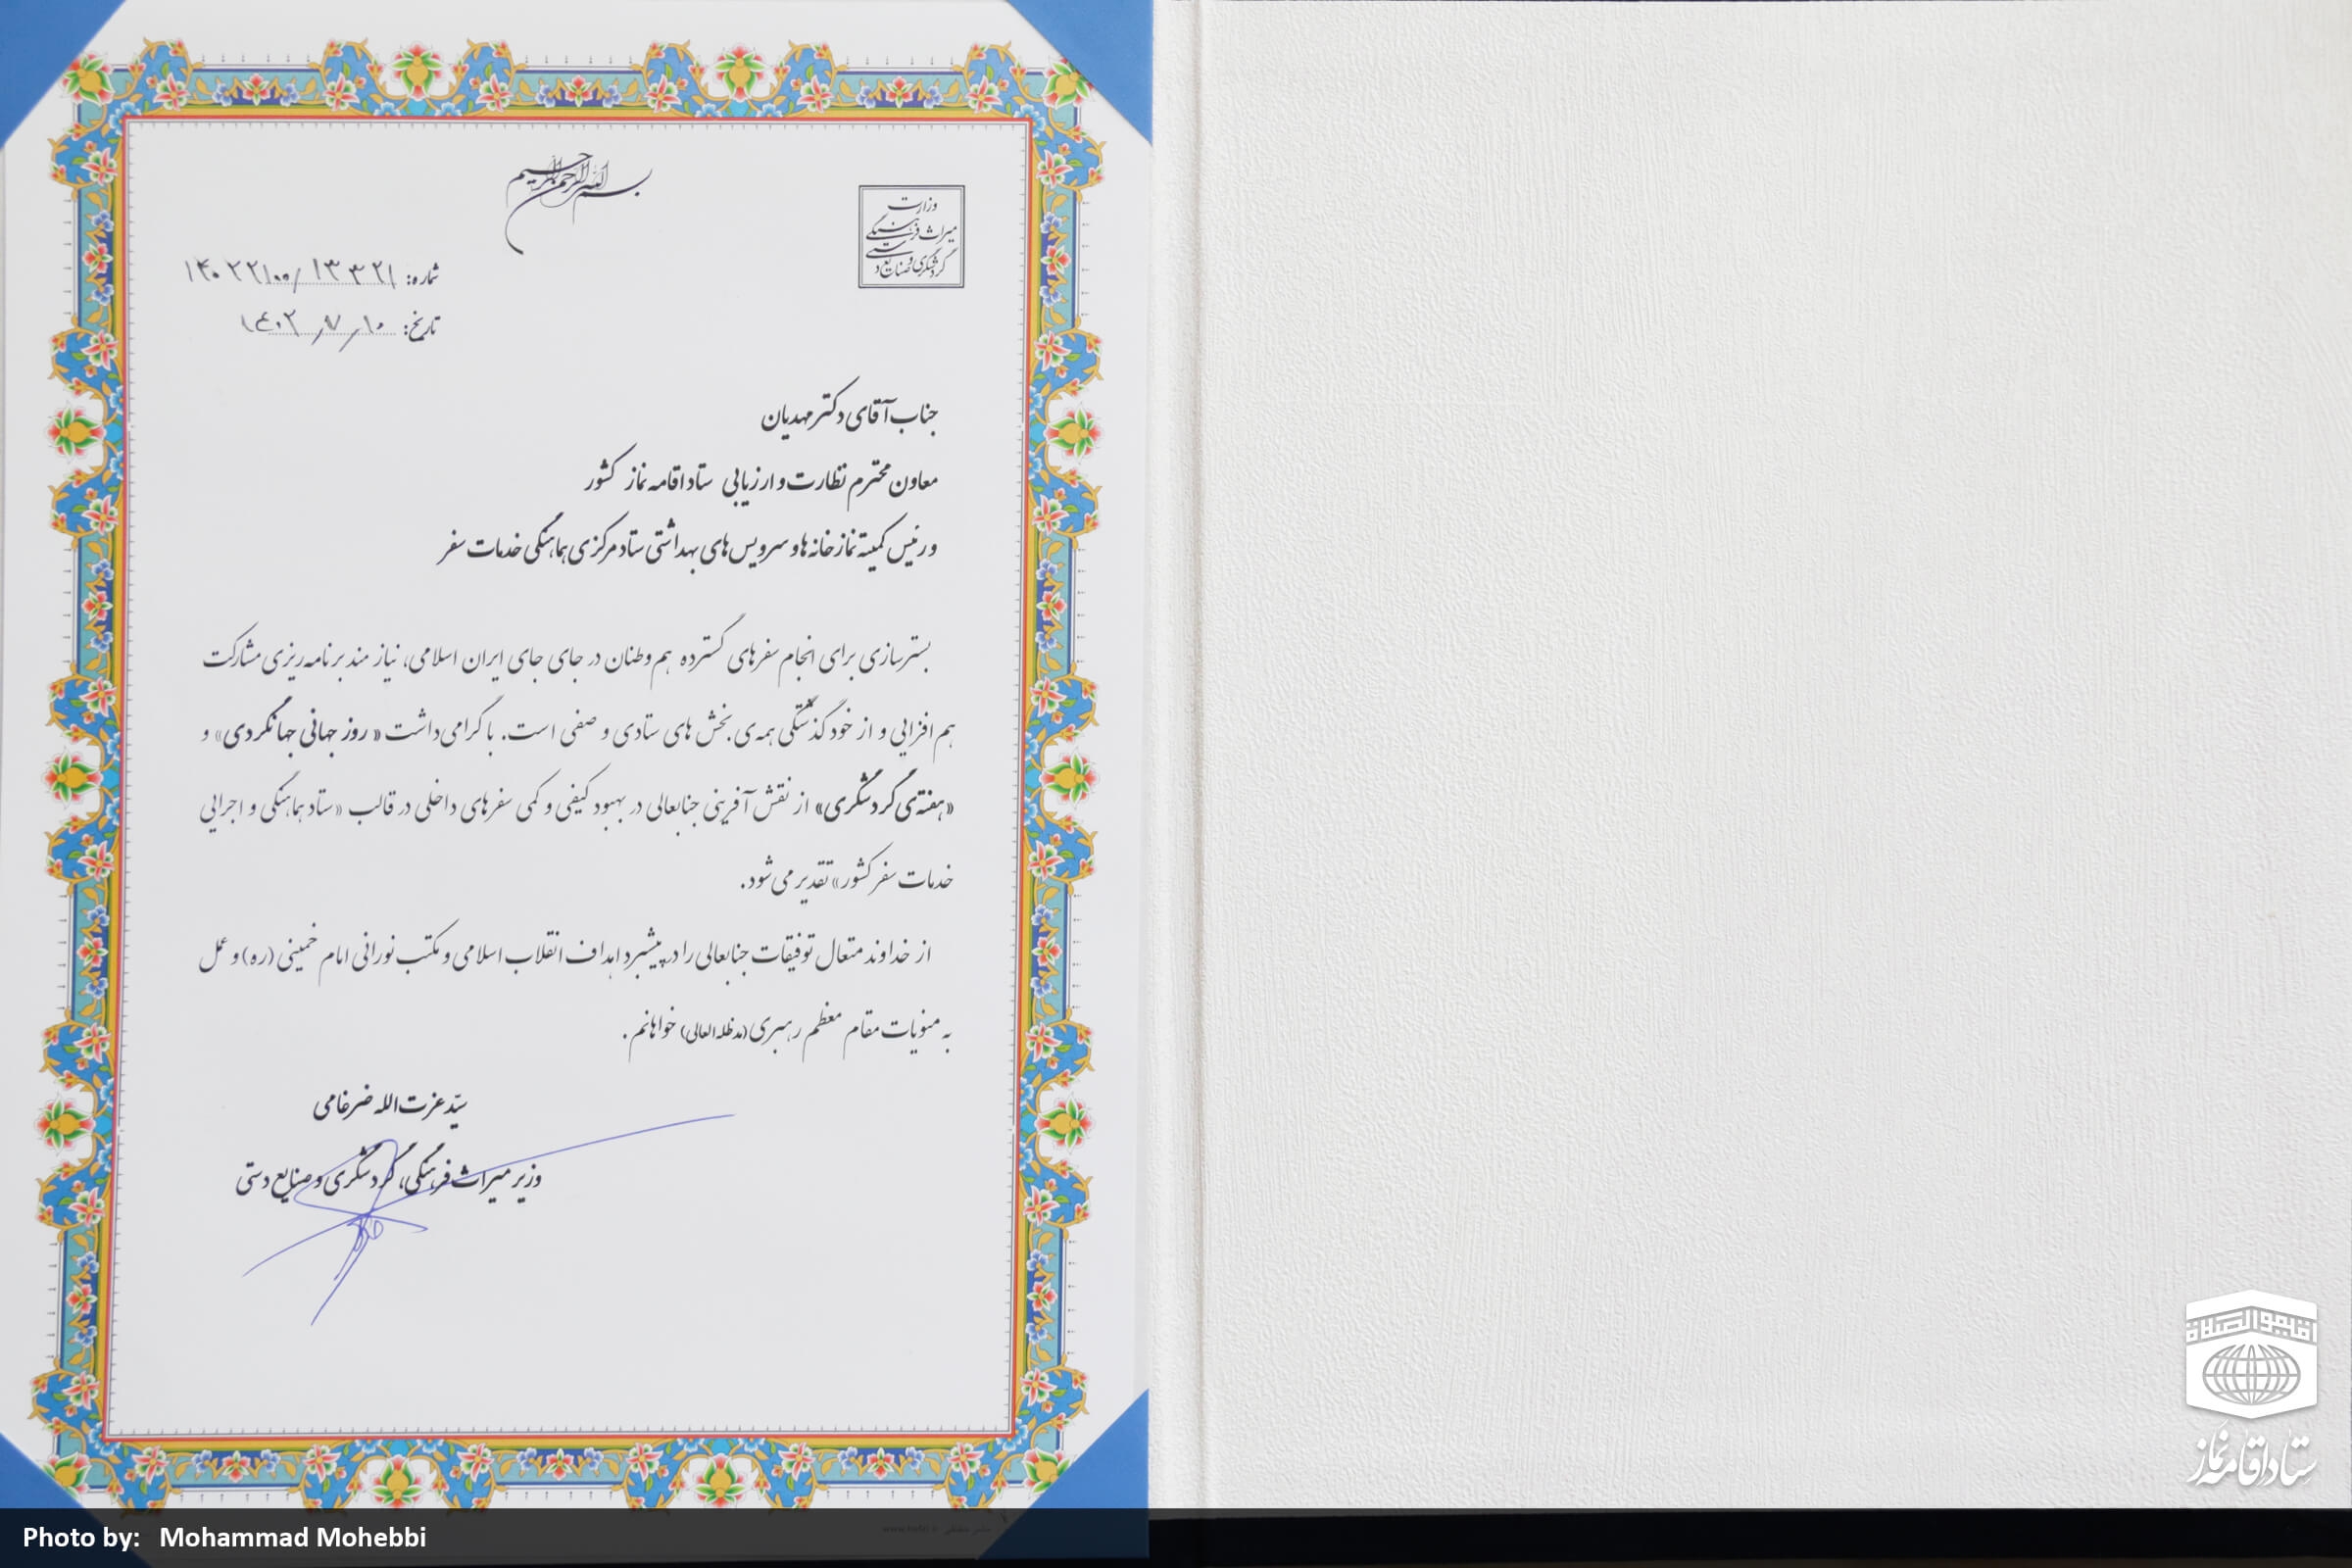 بسم الله الرحمن الرحیم
وزارت
میراث فرهنگی
گردشگری و صنایع دستی
شماره: ۱۴۰۲۲۱۰۰/۱۳۳۲۱
تاریخ: ۱۴۰۲/۷/۱۰
جناب آقای دکتر مهدیان
معاون محترم نظارت و ارزیابی ستاد اقامه نماز کشور
و رئیس کمیته نمازخانه ها و سرویس های بهداشتی ستاد مرکزی هماهنگی خدمات سفر
بسترسازی برای انجام سفرهای گسترده هم وطنان در جای جای ایران اسلامی، نیاز مند برنامه ریزی مشارکت
هم افزایی و از خود گذشتگی همه ی بخش های ستادی و صفی است. با گرامی داشت «روز جهانی جهانگردی» و
«هفته ی گردشگری» از نقش آفرینی جنابعالی در بهبود کیفی و کمی سفرهای داخلی در قالب «ستاد هماهنگی و اجرایی
خدمات سفر کشور» تقدیر می شود.
از خداوند متعال توفیقات جنابعالی را در پیشبرد اهداف انقلاب اسلامی و مکتب نورانی امام خمینی (ره) و عمل
به منویات مقام معظم رهبری (مدظله العالی) خواهانم.
سیّد عزت الله ضرغامی
وزیر میراث فرهنگی، گردشگری و صنایع دستی
اقیموا الصلاة
ستاد اقامه نماز
Photo by: Mohammad Mohebbi